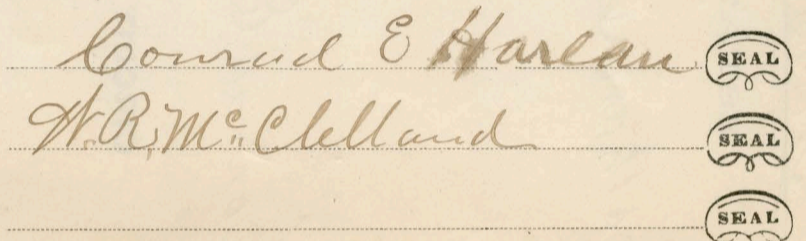 Conrad E Harlan SEAL
W.R. Mc Clelland SEAL
SEAL